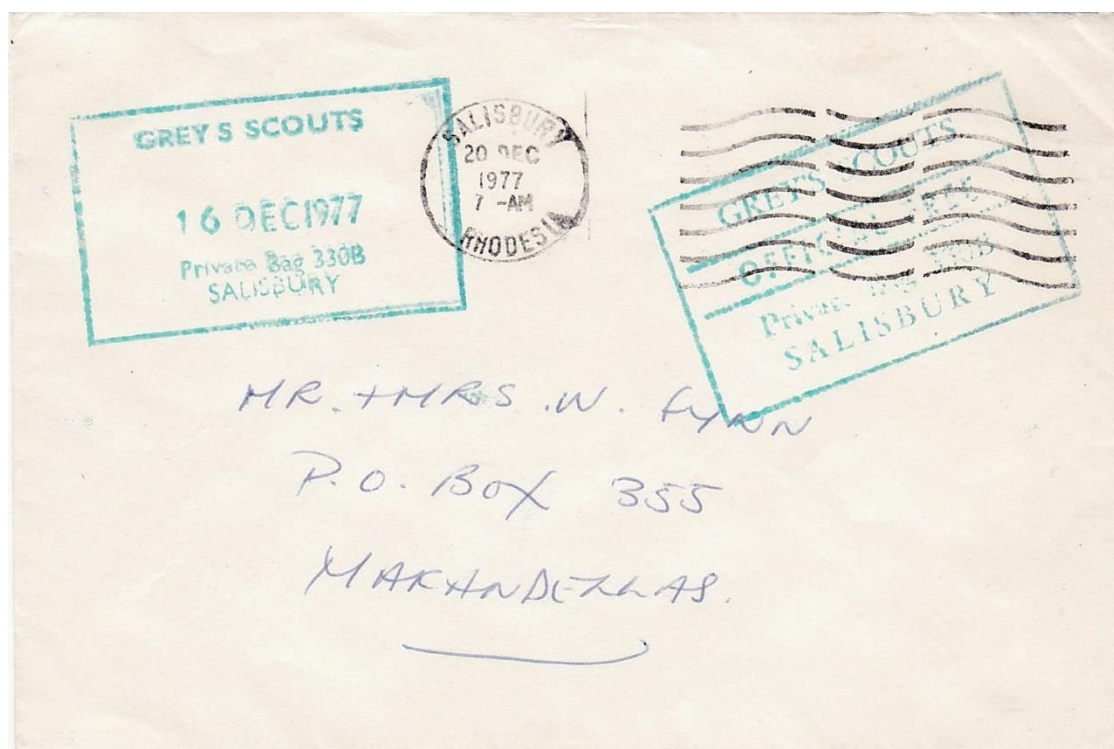 GREY'S SCOUTS
16 DEC 1977
Private Bag 330B
SALISBURY
SALISBURY
20 DEC
1977
7 -AM
RHODESIA
GREY'S SCOUTS
OFFICIAL FREE
Private Bag 330B
SALISBURY
MR. + MRS. W. FYNN
P.O. BOX 355
MARANDELLAS.